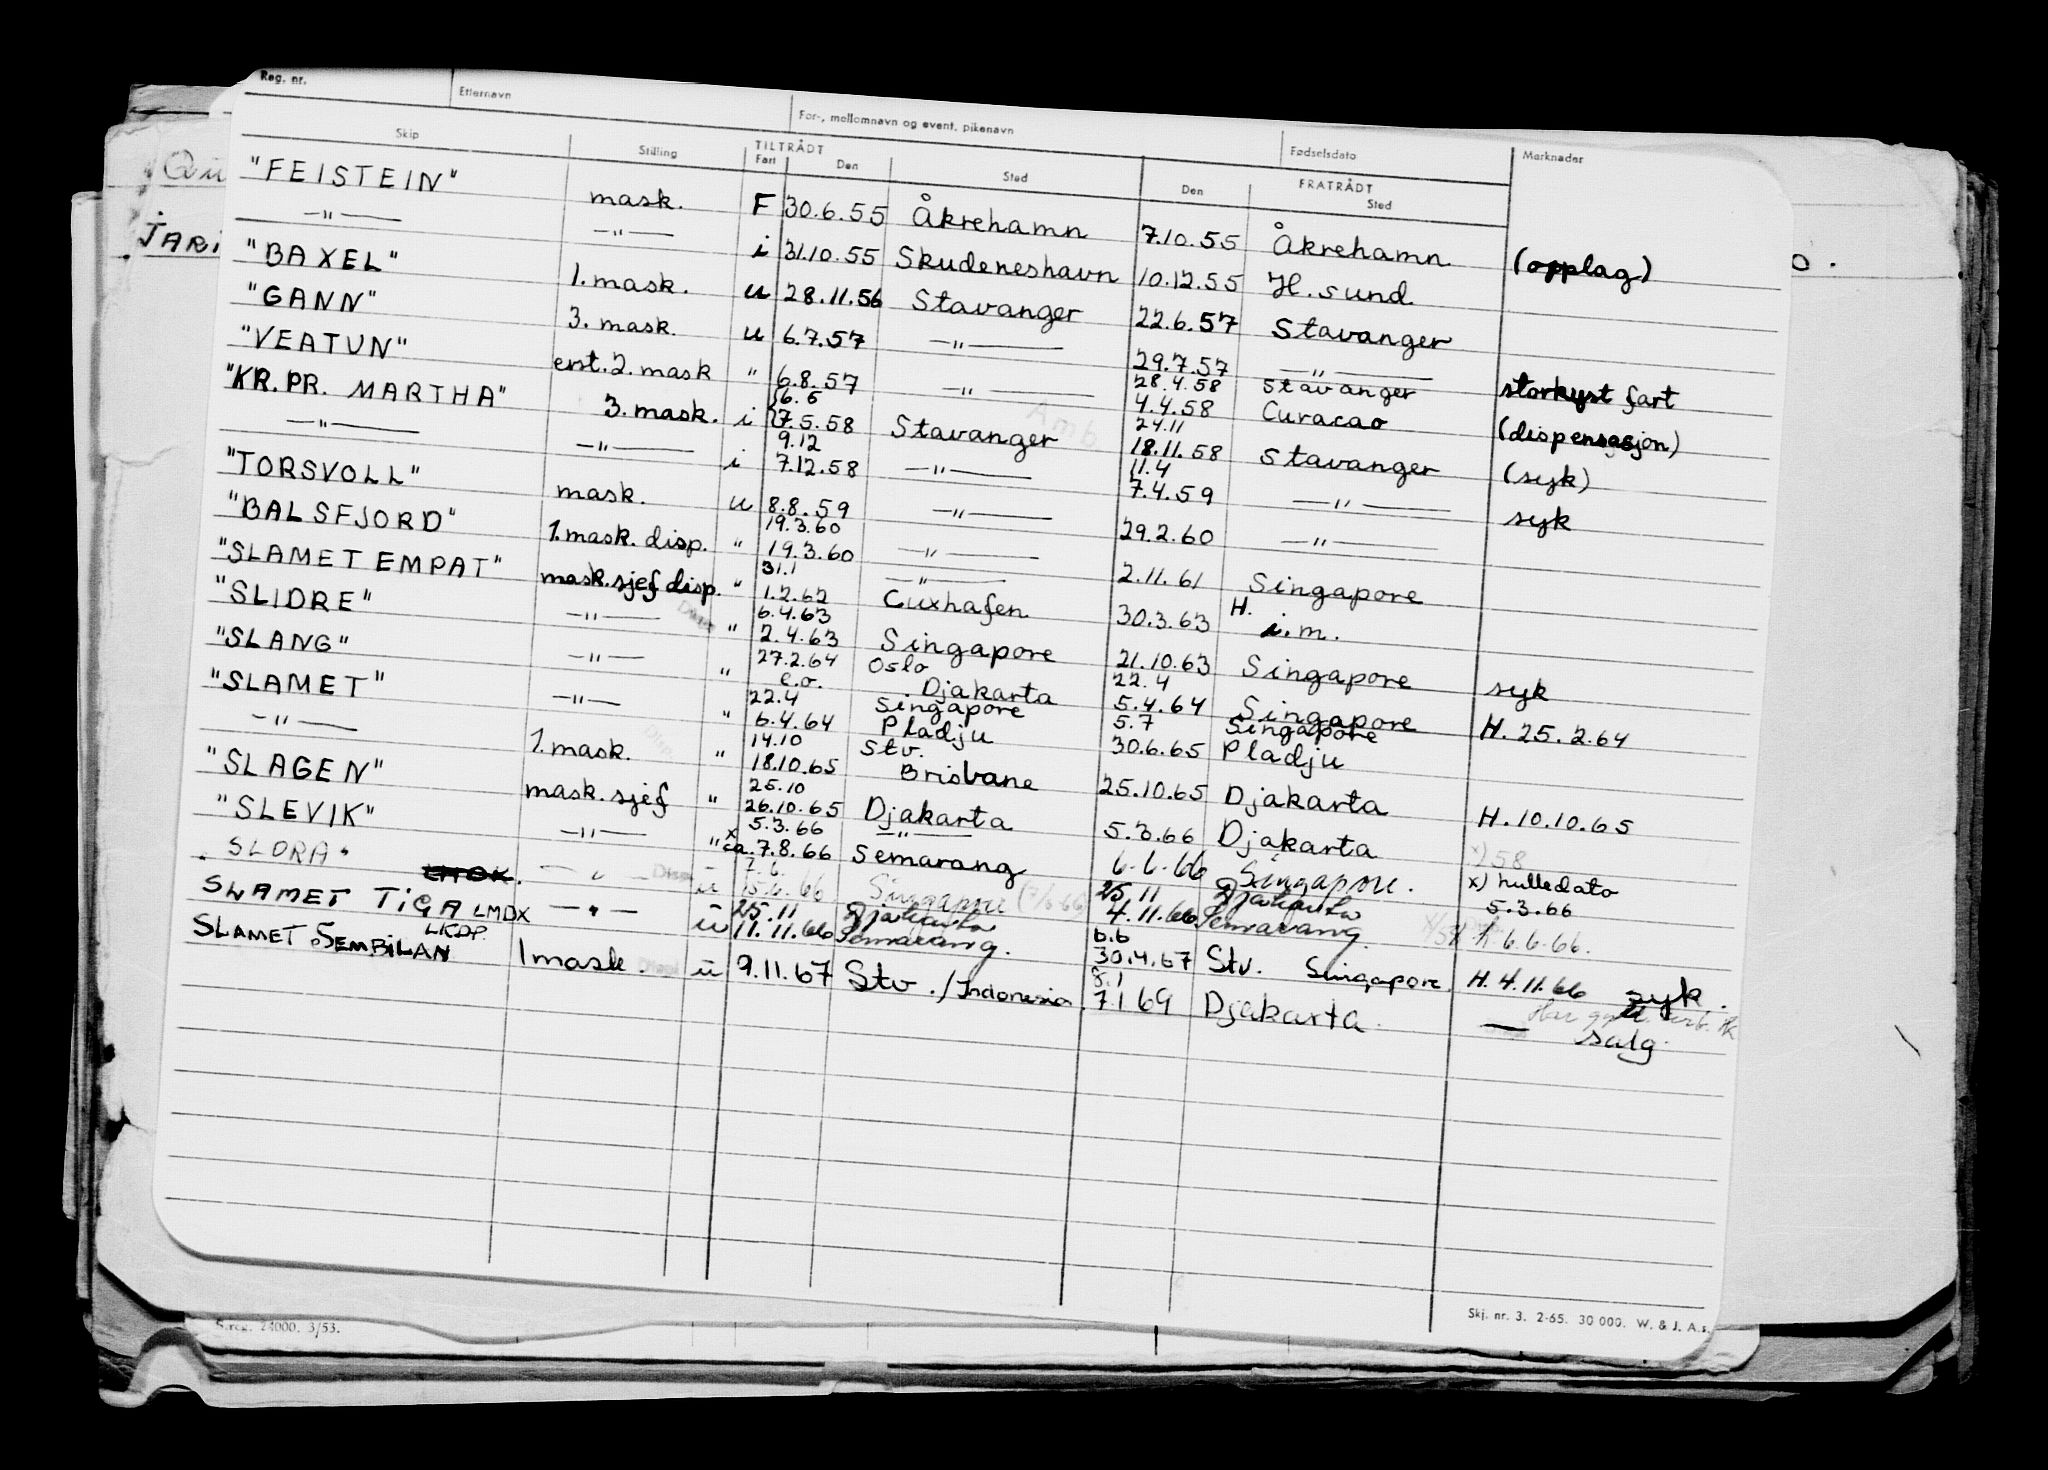 Reg. nr. Etternavn For-, mellomnavn og event. pikenavn Fødselsdato Merknader
Skip Stilling TILTRÅDT FRATRÅDT
Fart Den Sted Den Sted
"FEISTEIN" mask. F 30.6.55 Åkrehamn 7.10.55 Åkrehamn (opplag)
—"— —"— i 31.10.55 Skudeneshavn 10.12.55 H.sund
"BAXEL" 1. mask. u 28.11.56 Stavanger 22.6.57 Stavanger
"GANN" 3. mask. u 6.7.57 —"— 29.7.57 —"— storkyst fart
"VEATUN" erst. 2. mask " 6.8.57 —"— 28.4.58 Stavanger
4.4.58 Curacao (dispensasjon)
"KR. PR. MARTHA" 3. mask. i 16.5
7.5.58 Stavanger 24.11
18.11.58 Stavanger (syk)
—"— —"— i 9.12
7.12.58 —"— 11.4
7.4.59 —"— syk
"TORSVOLL" mask. u 8.8.59 —"— 29.2.60 —"—
"BALSFJORD" 1. mask. disp. " 19.3.60
19.3.60 —"— 2.11.61 Singapore
"SLAMET EMPAT" mask.sjef disp. " 31.1
1.2.62 —"—
Cuxhafen 30.3.63 H.
i.m.
"SLIDRE" —"— " 6.4.63
2.4.63 Singapore 21.10.63 Singapore syk
"SLANG" —"— " 27.2.64
e.o. Oslo
Djakarta 22.4
5.4.64 Singapore H. 25.2.64
"SLAMET" —"— " 22.4
6.4.64 Singapore
Pladju 5.7
30.6.65 Singapore
Pladju
—"— 1. mask. " 14.10
18.10.65 Stv.
Brisbane 25.10.65 Djakarta H. 10.10.65
"SLAGEN" mask. sjef " 25.10
26.10.65 Djakarta 5.3.66 Djakarta x) 58
"SLEVIK" —"— " 5.3.66
x ca. 7.8.66 —"—
Semarang 6.6.66 Singapore. x) hulledato
5.3.66
"SLDRA" —"— u 7.6.
15.6.66 Singapore (7/6-66) 25.11
4.11.66 Djakarta
Semarang. 6.6.66.
SLAMET TIGA LMDX —"— u 25.11
11.11.66 Djakarta
Semarang. 6.6
30.4.67 Stv. Singapore. H. 4.11.66 syk.
LKDP
SLAMET SEMBILAN 1 mask. u 9.11.67 Stv./Indonesia 8.1
7.1 69 Djakarta. — salg.
JARI
S.reg. 24000. 3/53.
Skj. nr. 3. 2-65. 30 000. W. & J. A.s.